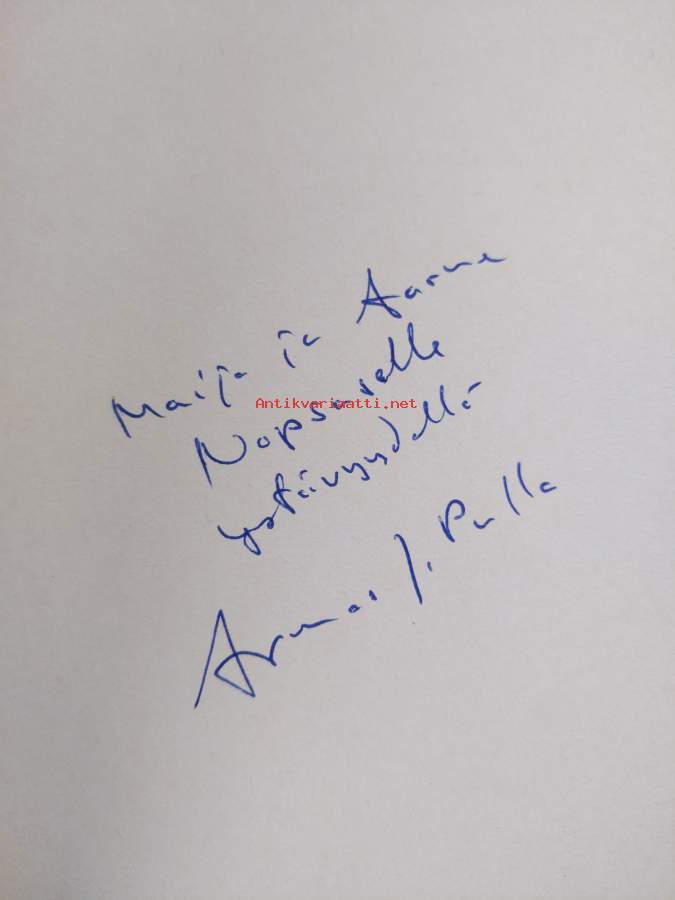 Maija ja Aarne
Nopsaselle
Antikvariaatti.net
ystävyydellä
Armas J. Pulla